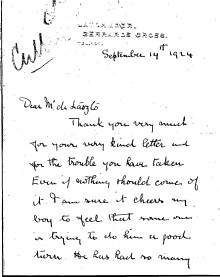 LATCHMOOR,
GERRARDS CROSS.
September 14th 1924
Dear Mr de László
Thank you very much
for your very kind letter and
for the trouble you have taken
Even if nothing should come of
it I am sure it cheers my
boy to feel that some one
is trying to do him a good
turn. He has had so many